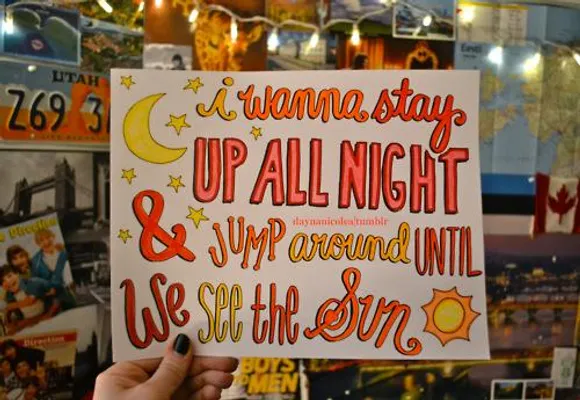 UTAH
Z69 3
i wanna stay
UP ALL NIGHT
daynanicolea/tumblr
& JUMP around UNTIL
We see the Sun
Direction
Direction
BOYS
TO MEN